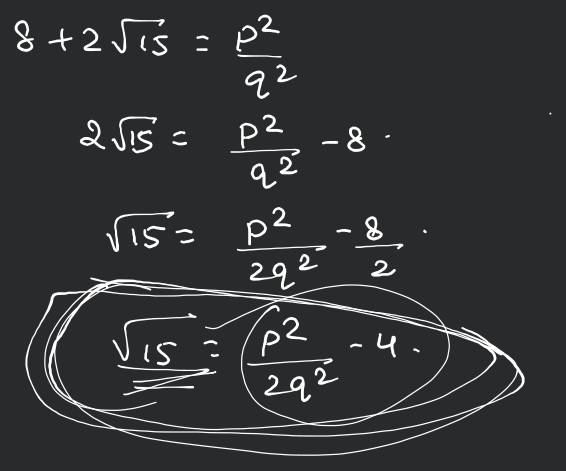 8 + 2√15 = p²/q²
2√15 = p²/q² - 8.
√15 = p²/2q² - 8/2.
√15 = p²/2q² - 4.